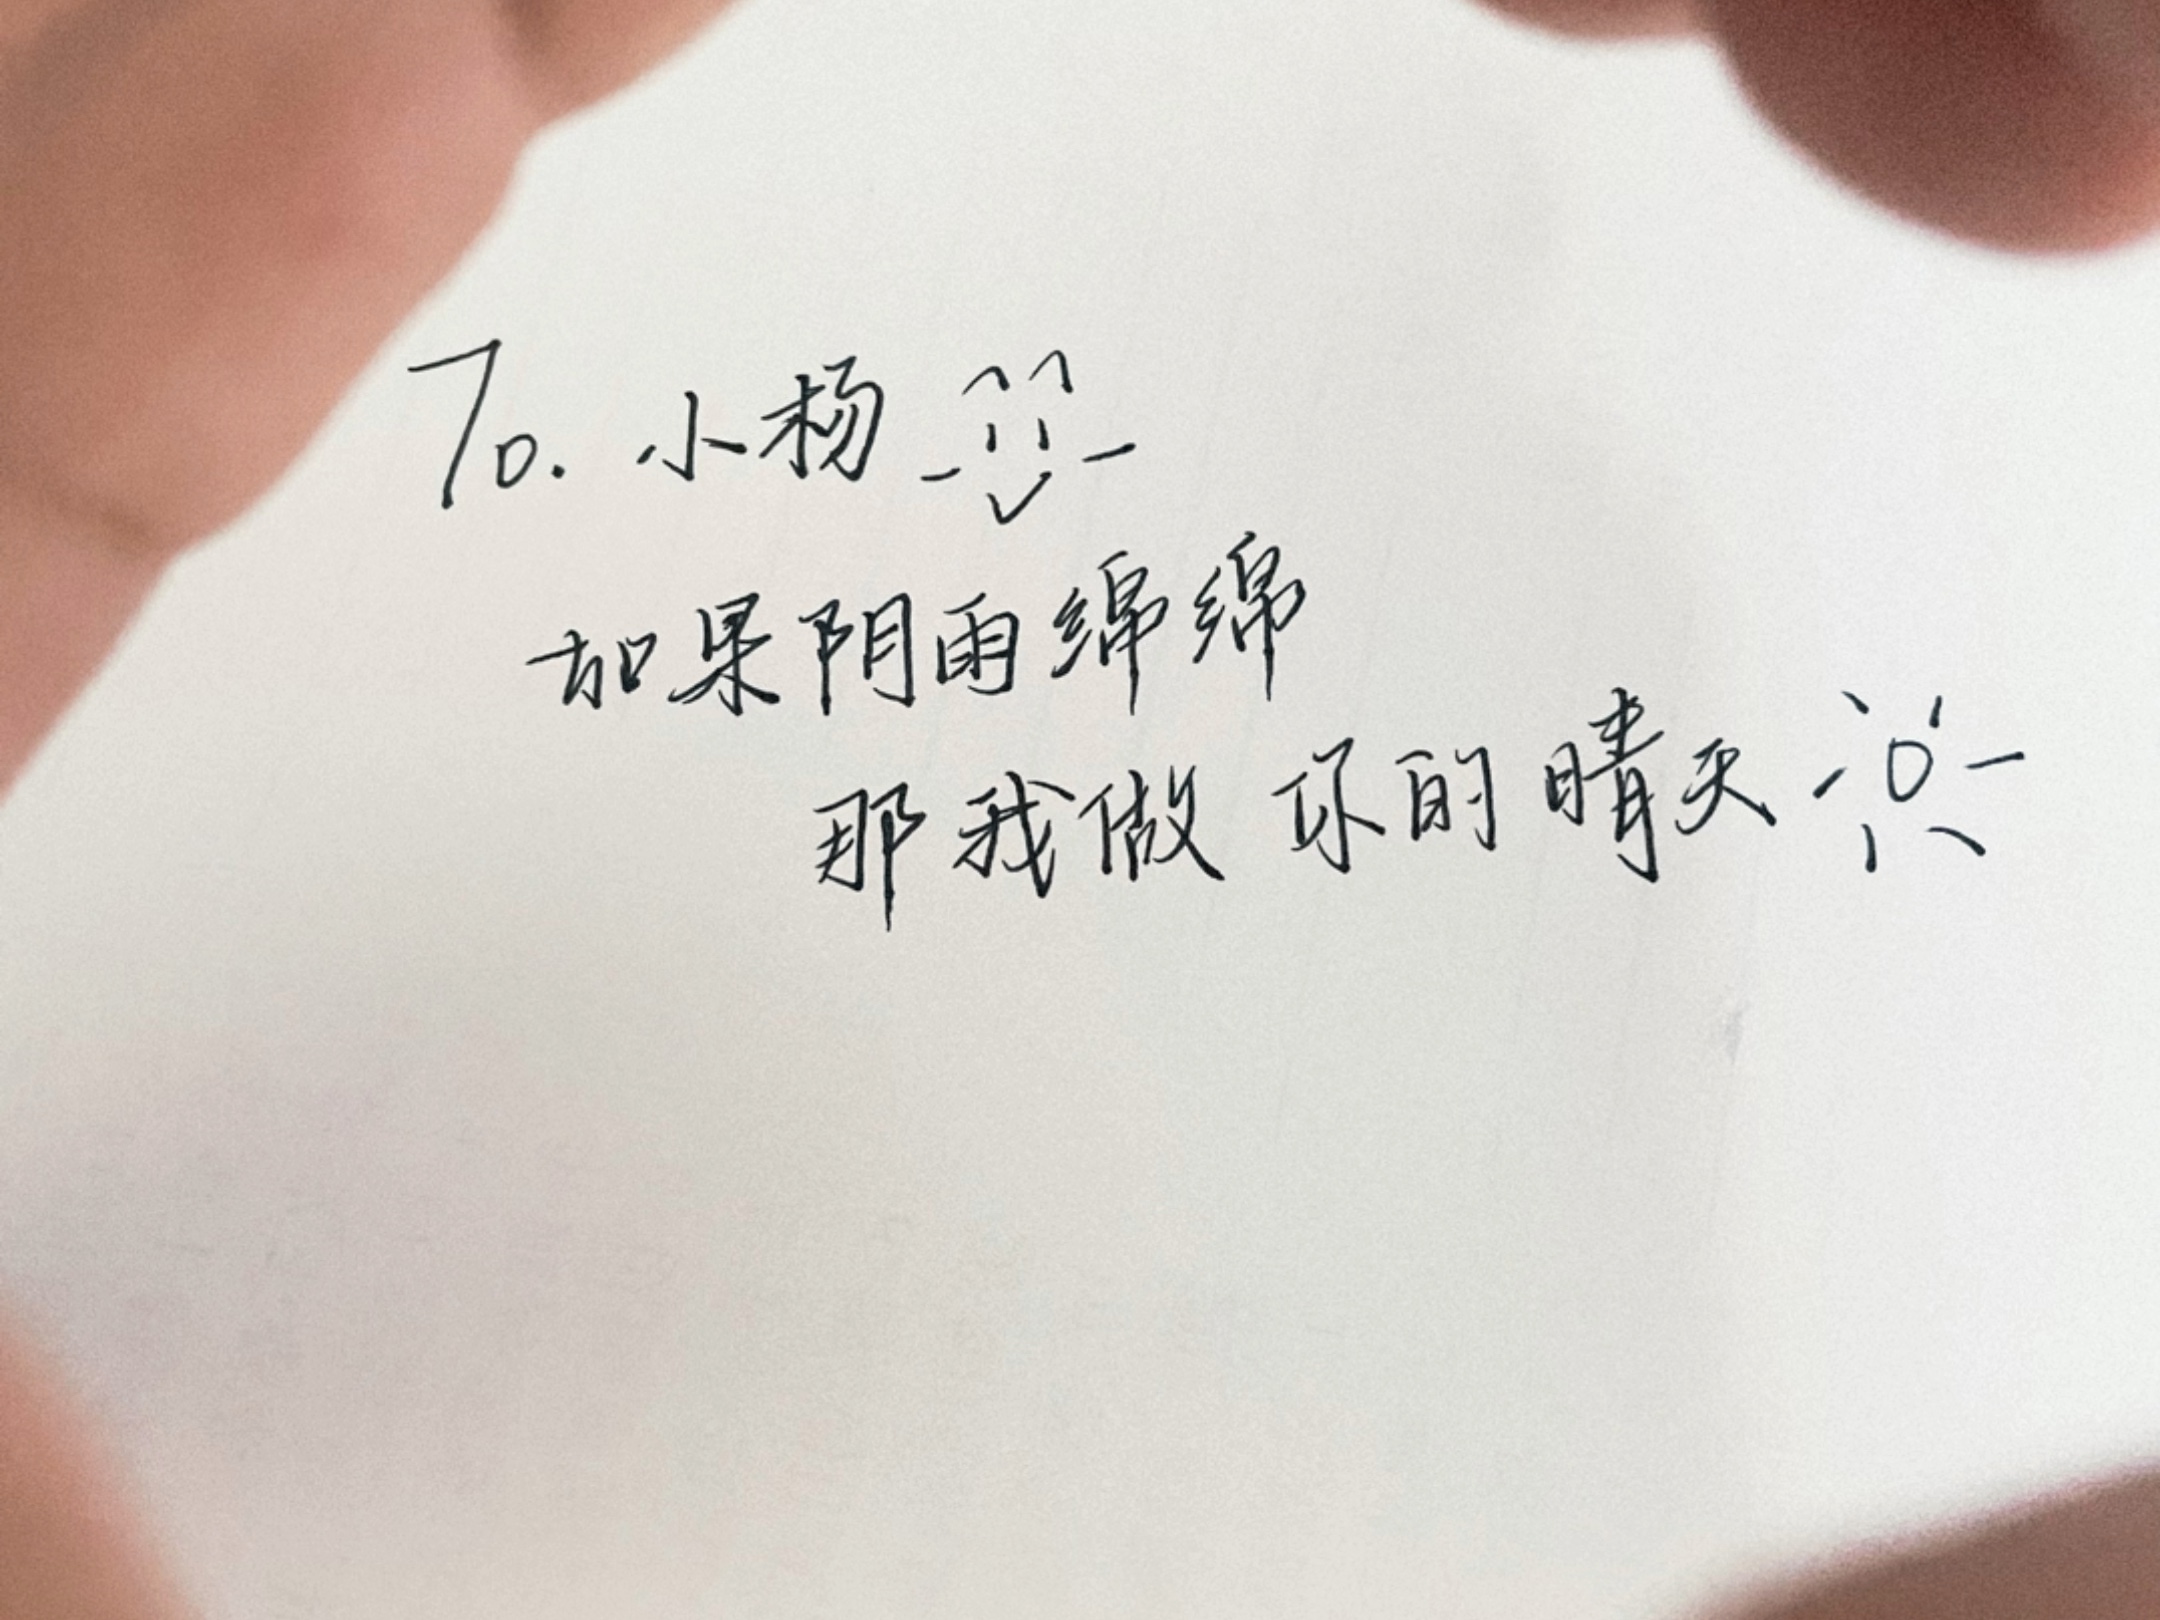 To. 小杨
如果阴雨绵绵
那我做你的晴天